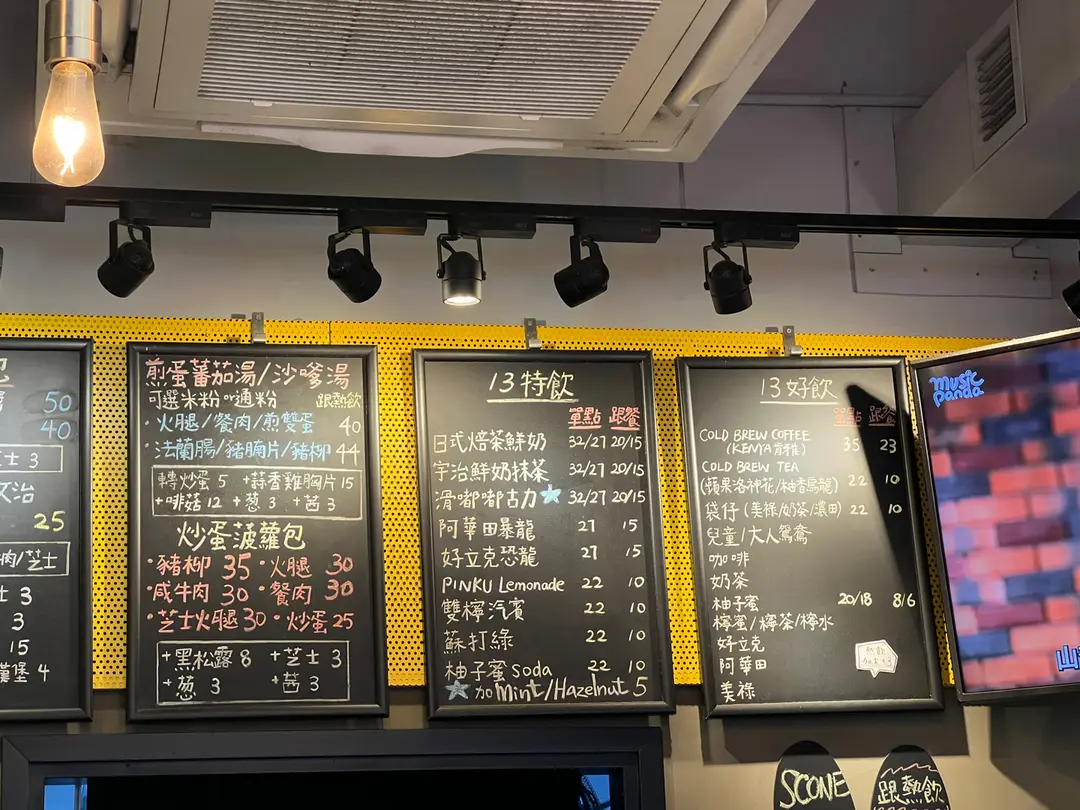 50
40
芝士 3
25
肉/芝士
3
15
漢堡 4
煎蛋蕃茄湯/沙嗲湯
可選米粉 or 通粉 跟熱飲
· 火腿/餐肉/煎雙蛋 40
· 法蘭腸/豬腩片/豬柳 44
轉炒蛋 5 +蒜香雞胸片 15
+啡菇 12 +葱 3 +茜 3
炒蛋菠蘿包
· 豬柳 35 · 火腿 30
· 咸牛肉 30 · 餐肉 30
· 芝士火腿 30 · 炒蛋 25
+黑松露 8 +芝士 3
+葱 3 +茜 3
13特飲
單點 跟餐
日式焙茶鮮奶 32/27 20/15
宇治鮮奶抹茶 32/27 20/15
滑嘟嘟古力★ 32/27 20/15
阿華田暴龍 27 15
好立克恐龍 27 15
PINKU Lemonade 22 10
雙檸汽賓 22 10
蘇打綠 22 10
柚子蜜 soda 22 10
★加Mint/Hazelnut 5
13好飲
單點 跟餐
COLD BREW COFFEE 35 23
(KENYA 肯雅)
COLD BREW TEA
(蘋果洛神花/柚香烏龍) 22 10
袋仔 (美祿/奶茶/濃田) 22 10
兒童/大人鴛鴦
咖啡
奶茶
柚子蜜 20/18 8/6
檸蜜/檸茶/檸水
好立克
阿華田
美祿
music
panda
SCONE
跟熱飲